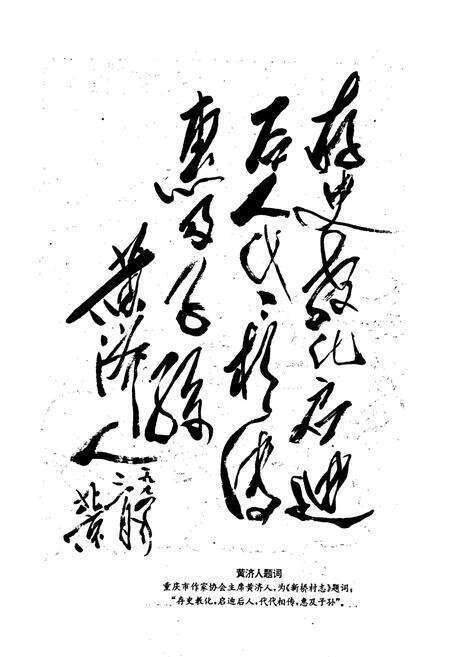 存史教化启迪
后人代〻相传
惠及子孙
黄济人
黄济人题词
重庆市作家协会主席黄济人，为《新桥村志》题词：
“存史教化，启迪后人，代代相传，惠及子孙”。